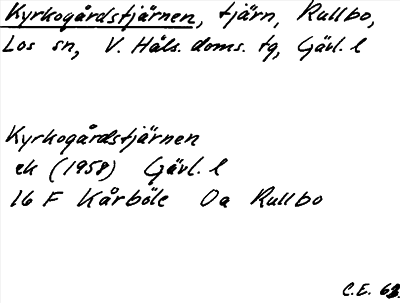 Kyrkogårdstjärnen, tjärn, Rullbo,
Los sn, V. Häls. doms. tg, Gävl. l
Kyrkogårdstjärnen
ek (1958) Gävl. l
16 F Kårböle 0a Rullbo
C.E. 63.